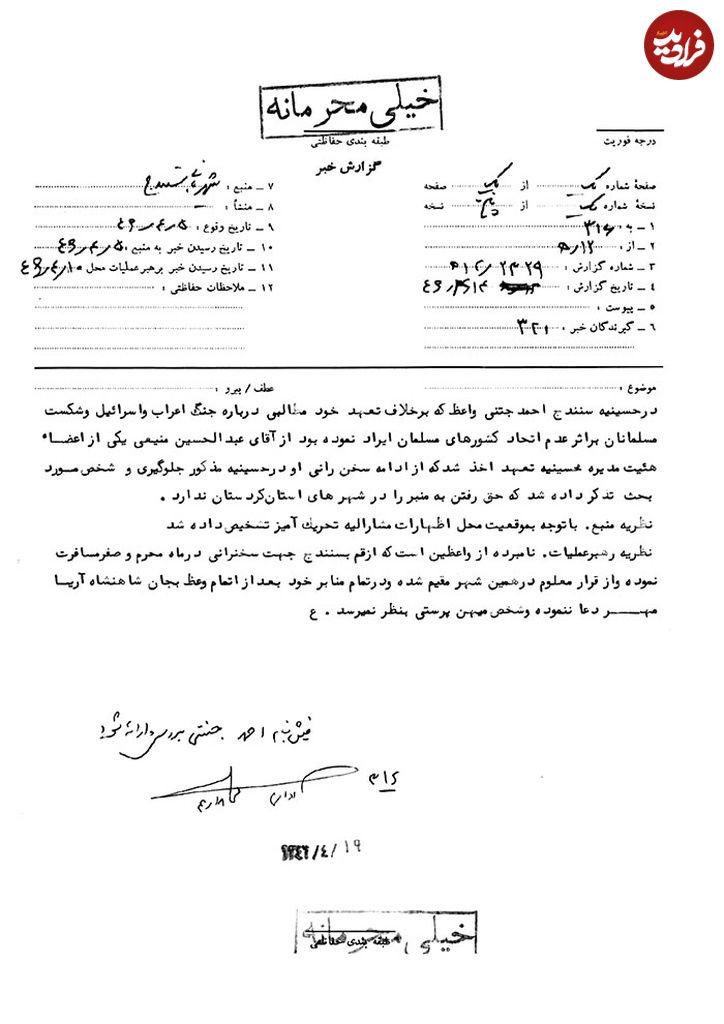 فرادید
خیلی محرمانه
طبقه بندی حفاظتی
درجه فوریت
گزارش خبر
صفحهٔ شماره یک از یک صفحه
نسخهٔ شماره یک از پنج نسخه
۱ ـ به : ۳۱۶
۲ ـ از : ۵/۱۲
۳ ـ شماره گزارش :
۴ ـ تاریخ گزارش :
۵ ـ پیوست :
۶ ـ گیرندگان خبر : ۳۲۱
۷ ـ منبع : شهربانی سنندج
۸ ـ منشأ :
۹ ـ تاریخ وقوع : ۴۶/۴/۵
۱۰ ـ تاریخ رسیدن خبر به منبع : ۴۶/۴/۵
۱۱ ـ تاریخ رسیدن خبر برهبرعملیات محل : ۴۶/۴/۱۰
۱۲ ـ ملاحظات حفاظتی :
موضوع :
عطف / پیرو :
درحسینیه سنندج احمد جنتی واعظ که برخلاف تعهد خود مطالبی درباره جنگ اعراب واسرائیل وشکست
مسلمانان براثر عدم اتحاد کشورهای مسلمان ایراد نموده بود از آقای عبدالحسین منیعی یکی از اعضاء
هئیت مدیره حسینیه تعهد اخذ شد که از ادامه سخن رانی او درحسینیه مذکور جلوگیری و شخص مورد
بحث تذکر داده شد که حق رفتن به منبر را در شهر های استان کردستان ندارد .
نظریه منبع . با توجه بموقعیت محل اظهارات مشارالیه تحریک آمیز تشخیص داده شد
نظریه رهبرعملیات . نامبرده از واعظین است که از قم بسنندج جهت سخنرانی درماه محرم و صفر مسافرت
نموده واز قرار معلوم درهمین شهر مقیم شده ودرتمام منابر خود بعد از اتمام وعظ بجان شاهنشاه آریا
مهـــر دعا ننموده وشخص میهن پرستی بنظر نمیرسد . ع
فیش بنام احمد جنتی بررسی و ارائه شود
۳۱۶
۱۳۴۶/۴/۱۹
خیلی محرمانه
طبقه بندی حفاظتی